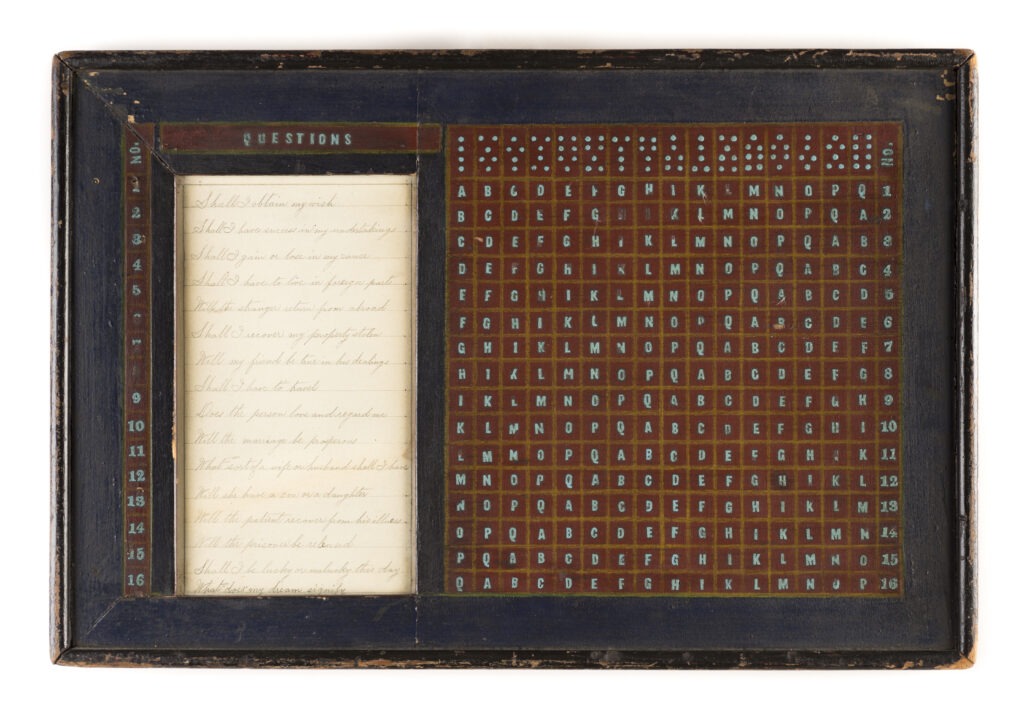 NO. QUESTIONS
1 Shall I obtain my wish
2 Shall I have success in my undertakings
3 Shall I gain or lose in my cause
4 Shall I have to live in foreign parts
5 Will the stranger return from abroad
Shall I recover my property stolen
7 Will my friend be true in his dealings
Shall I have to travel
9 Does the person love and regard me
10 Will the mariage be properous
11 What sort of a wife or husband shall I have
12 Will she have a son or a daughter
13 Will the patient recover from his illness
14 Will the prisoner be released
15 Shall I be lucky or unlucky this day
16 What does my dream signify
NO.
A B C D E F G H I K L M N O P Q 1
B C D E F G H I K L M N O P Q A 2
C D E F G H I K L M N O P Q A B 3
D E F G H I K L M N O P Q A B C 4
E F G H I K L M N O P Q A B C D 5
F G H I K L M N O P Q A B C D E 6
G H I K L M N O P Q A B C D E F 7
H I K L M N O P Q A B C D E F G 8
I K L M N O P Q A B C D E F G H 9
K L M N O P Q A B C D E F G H I 10
L M N O P Q A B C D E F G H I K 11
M N O P Q A B C D E F G H I K L 12
N O P Q A B C D E F G H I K L M 13
O P Q A B C D E F G H I K L M N 14
P Q A B C D E F G H I K L M N O 15
Q A B C D E F G H I K L M N O P 16